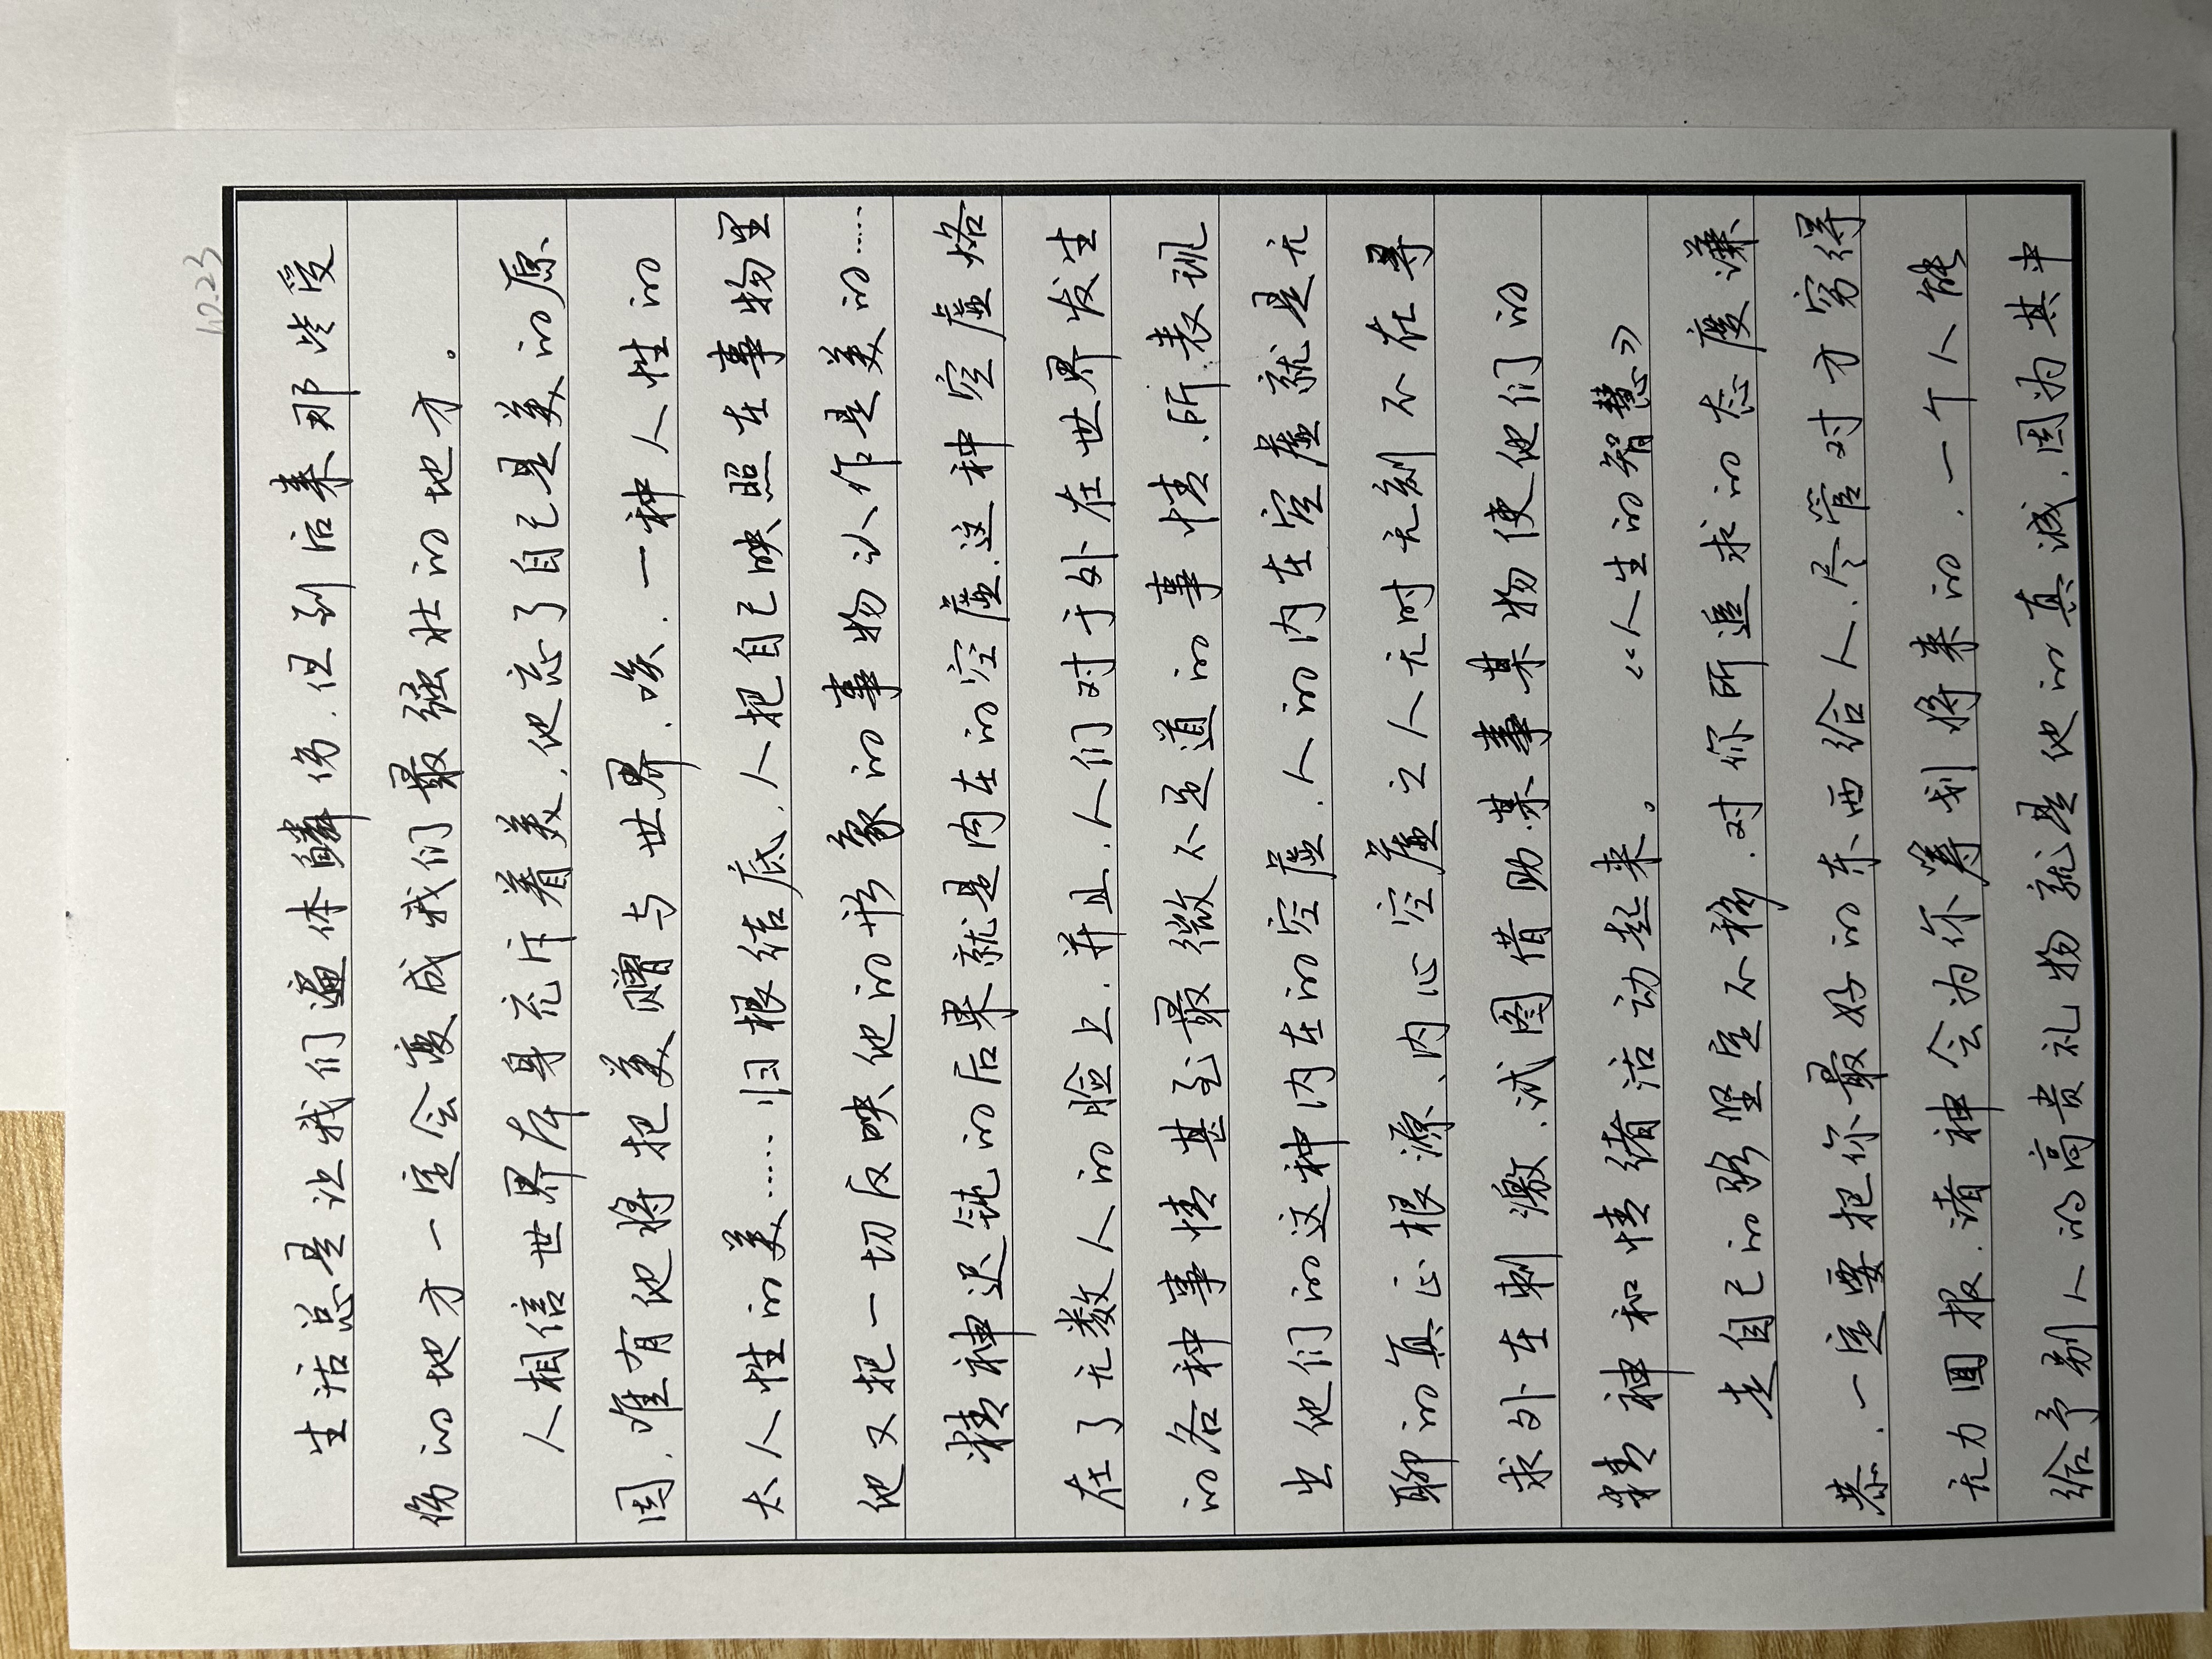 10.23
生活总是让我们遍体鳞伤,但到后来那些受
伤的地方一定会变成我们最强壮的地方。
人相信世界本身充斥着美,他忘了自己是美的原
因,唯有他将把美赠与世界,唉,一种人性的
太人性的美……归根结底,人把自己映照在事物里
他又把一切反映他的形象的事物认作是美的……
精神迟钝的后果就是内在的空虚,这种空虚烙
在了无数人的脸上,并且,人们对于外在世界发生
的各种事情甚至最微不足道的事情,所表现
出他们的这种内在的空虚,人的内在空虚就是无
聊的真正根源、内心空虚之人无时无刻不在寻
求外在刺激,试图借助某事某物使他们的
精神和情绪活动起来。 《人生的智慧》
走自己的路坚定不移,对你所追求的态度谦
恭,一定要把你最好的东西给人,尽管对方穷得
无力回报,诸神会为你筹划将来的,一个人能
给予别人的高贵礼物就是他的真诚,因为其中